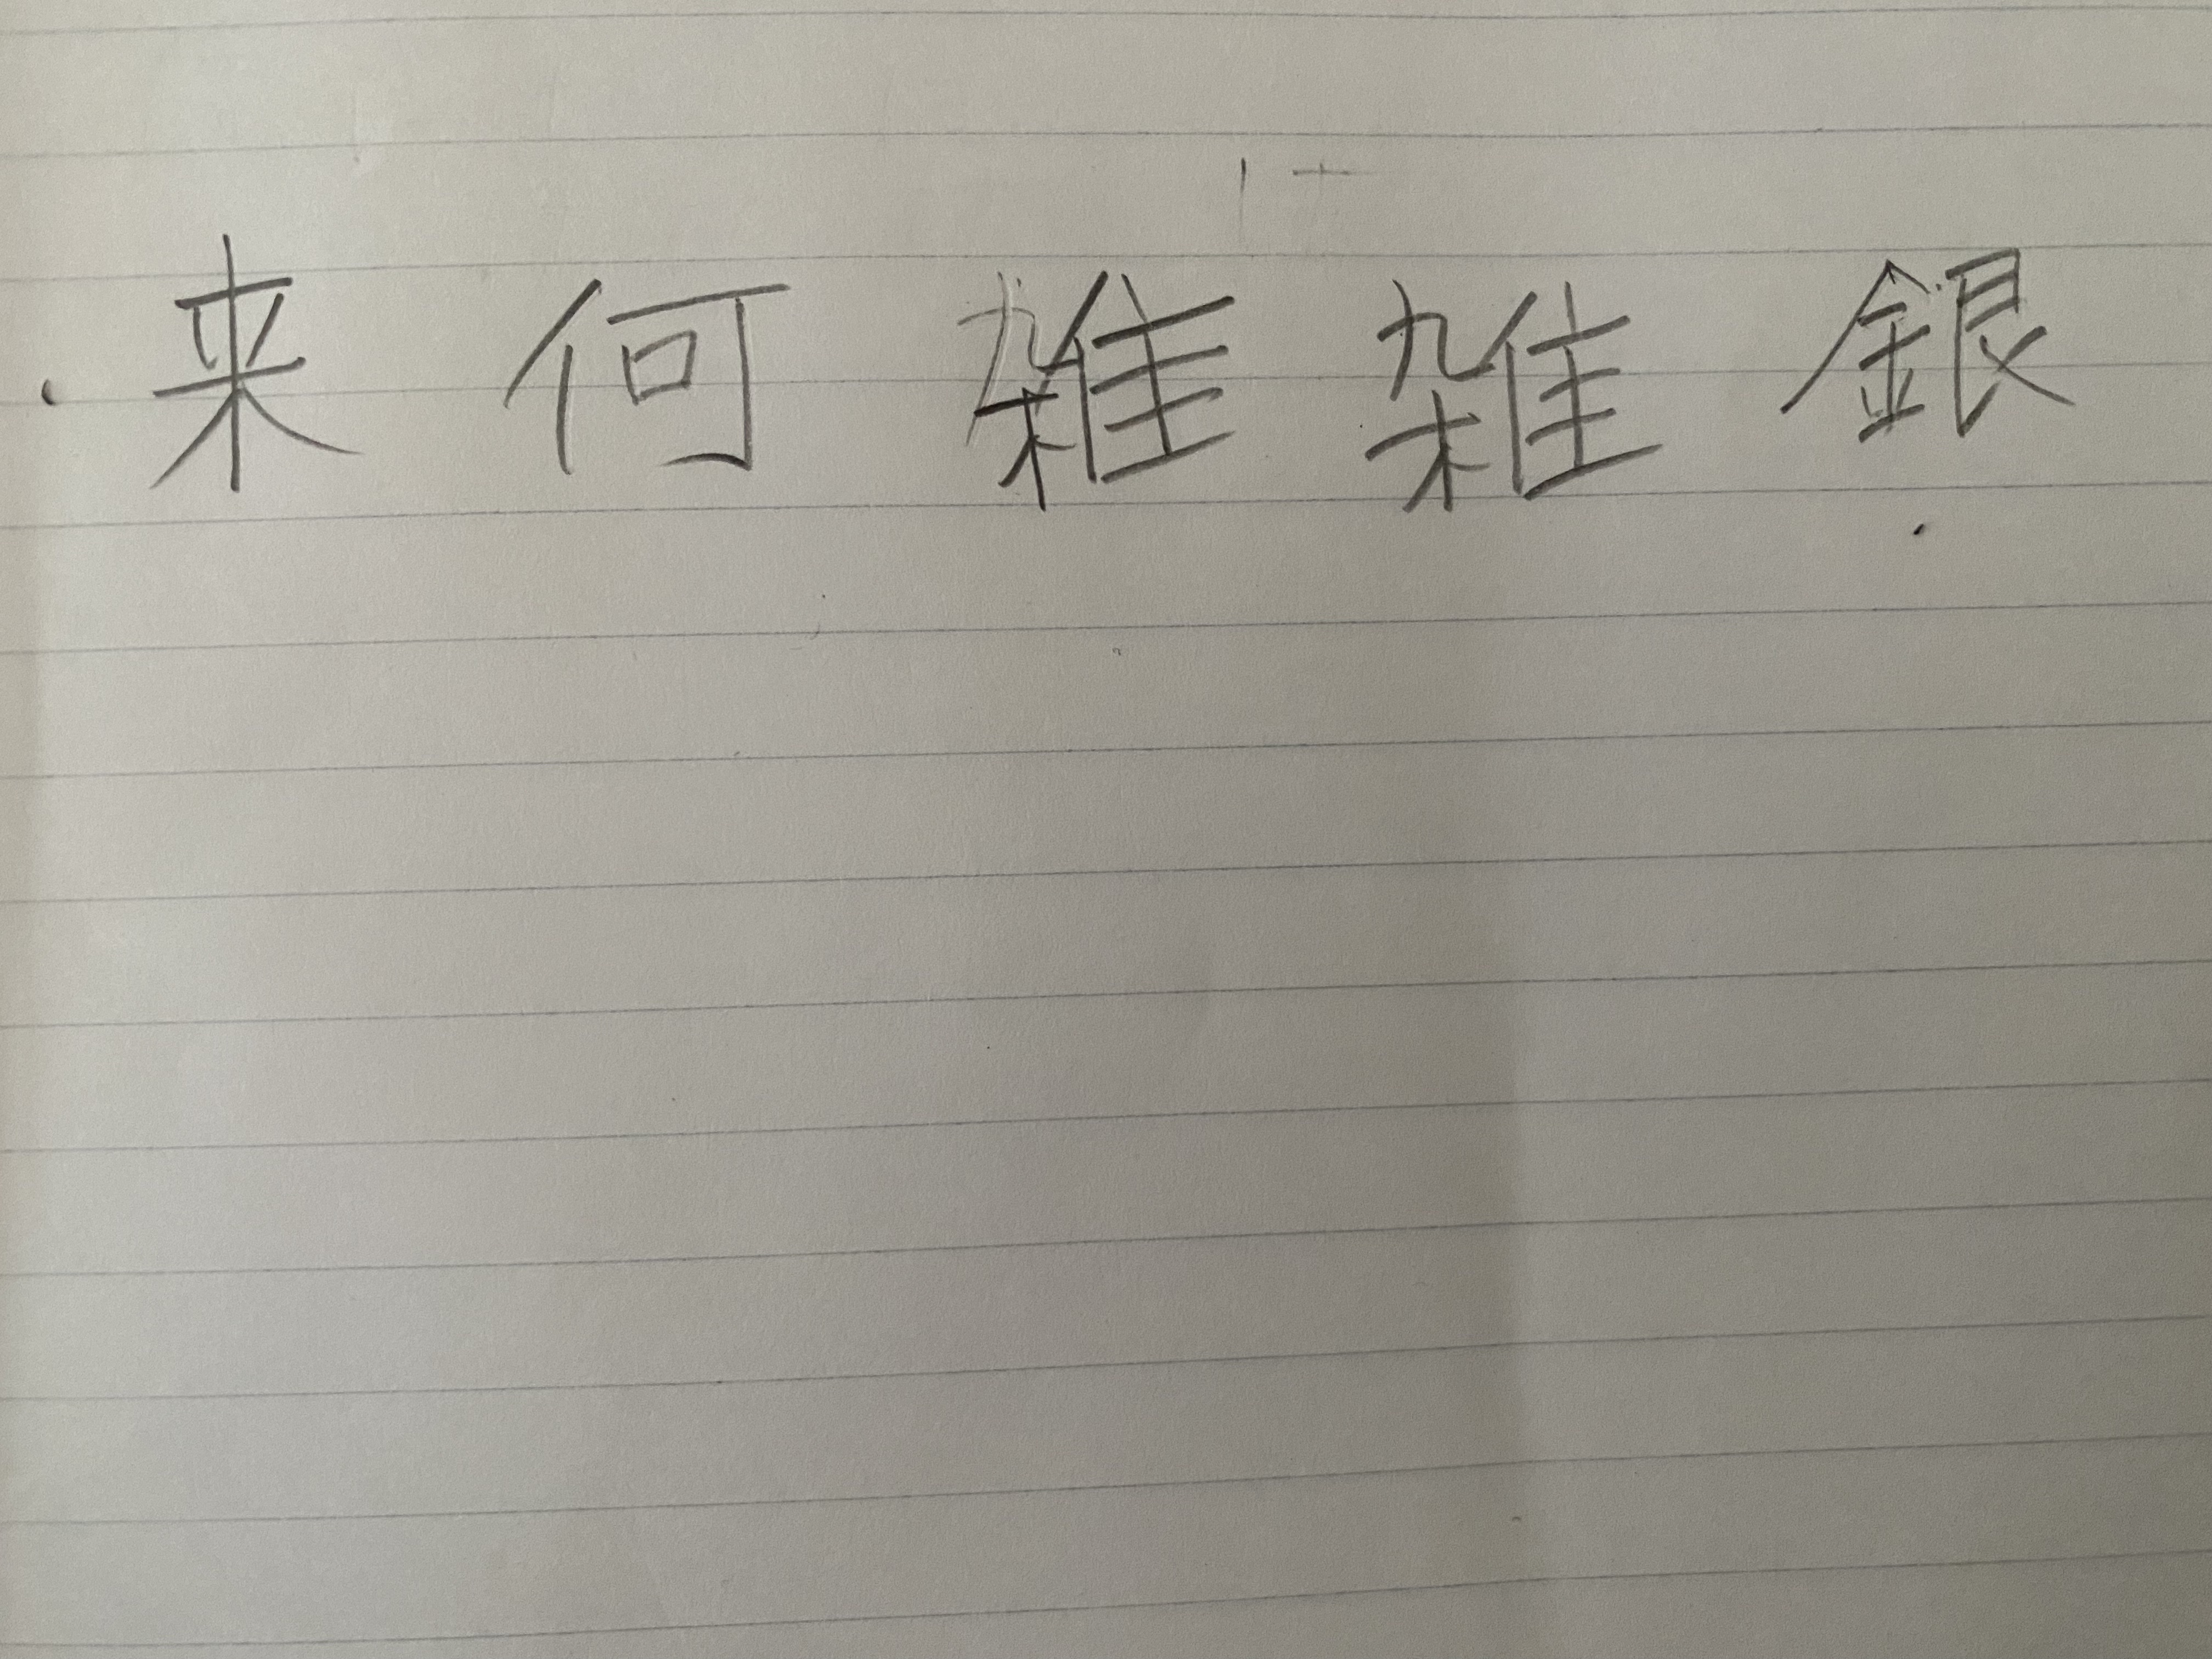 来 何 雑 雑 銀